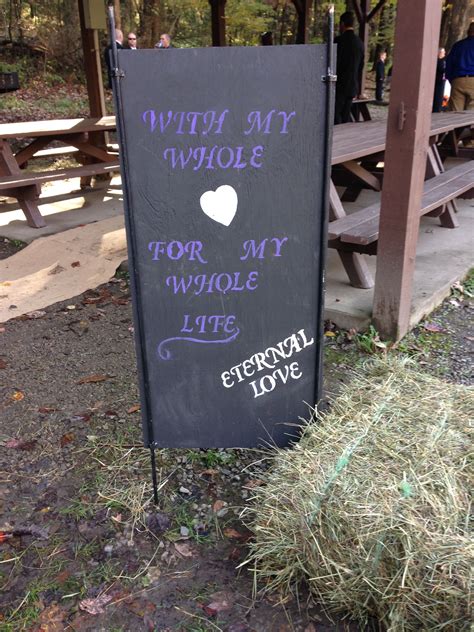 WITH MY
WHOLE
FOR MY
WHOLE
LIFE
ETERNAL
LOVE